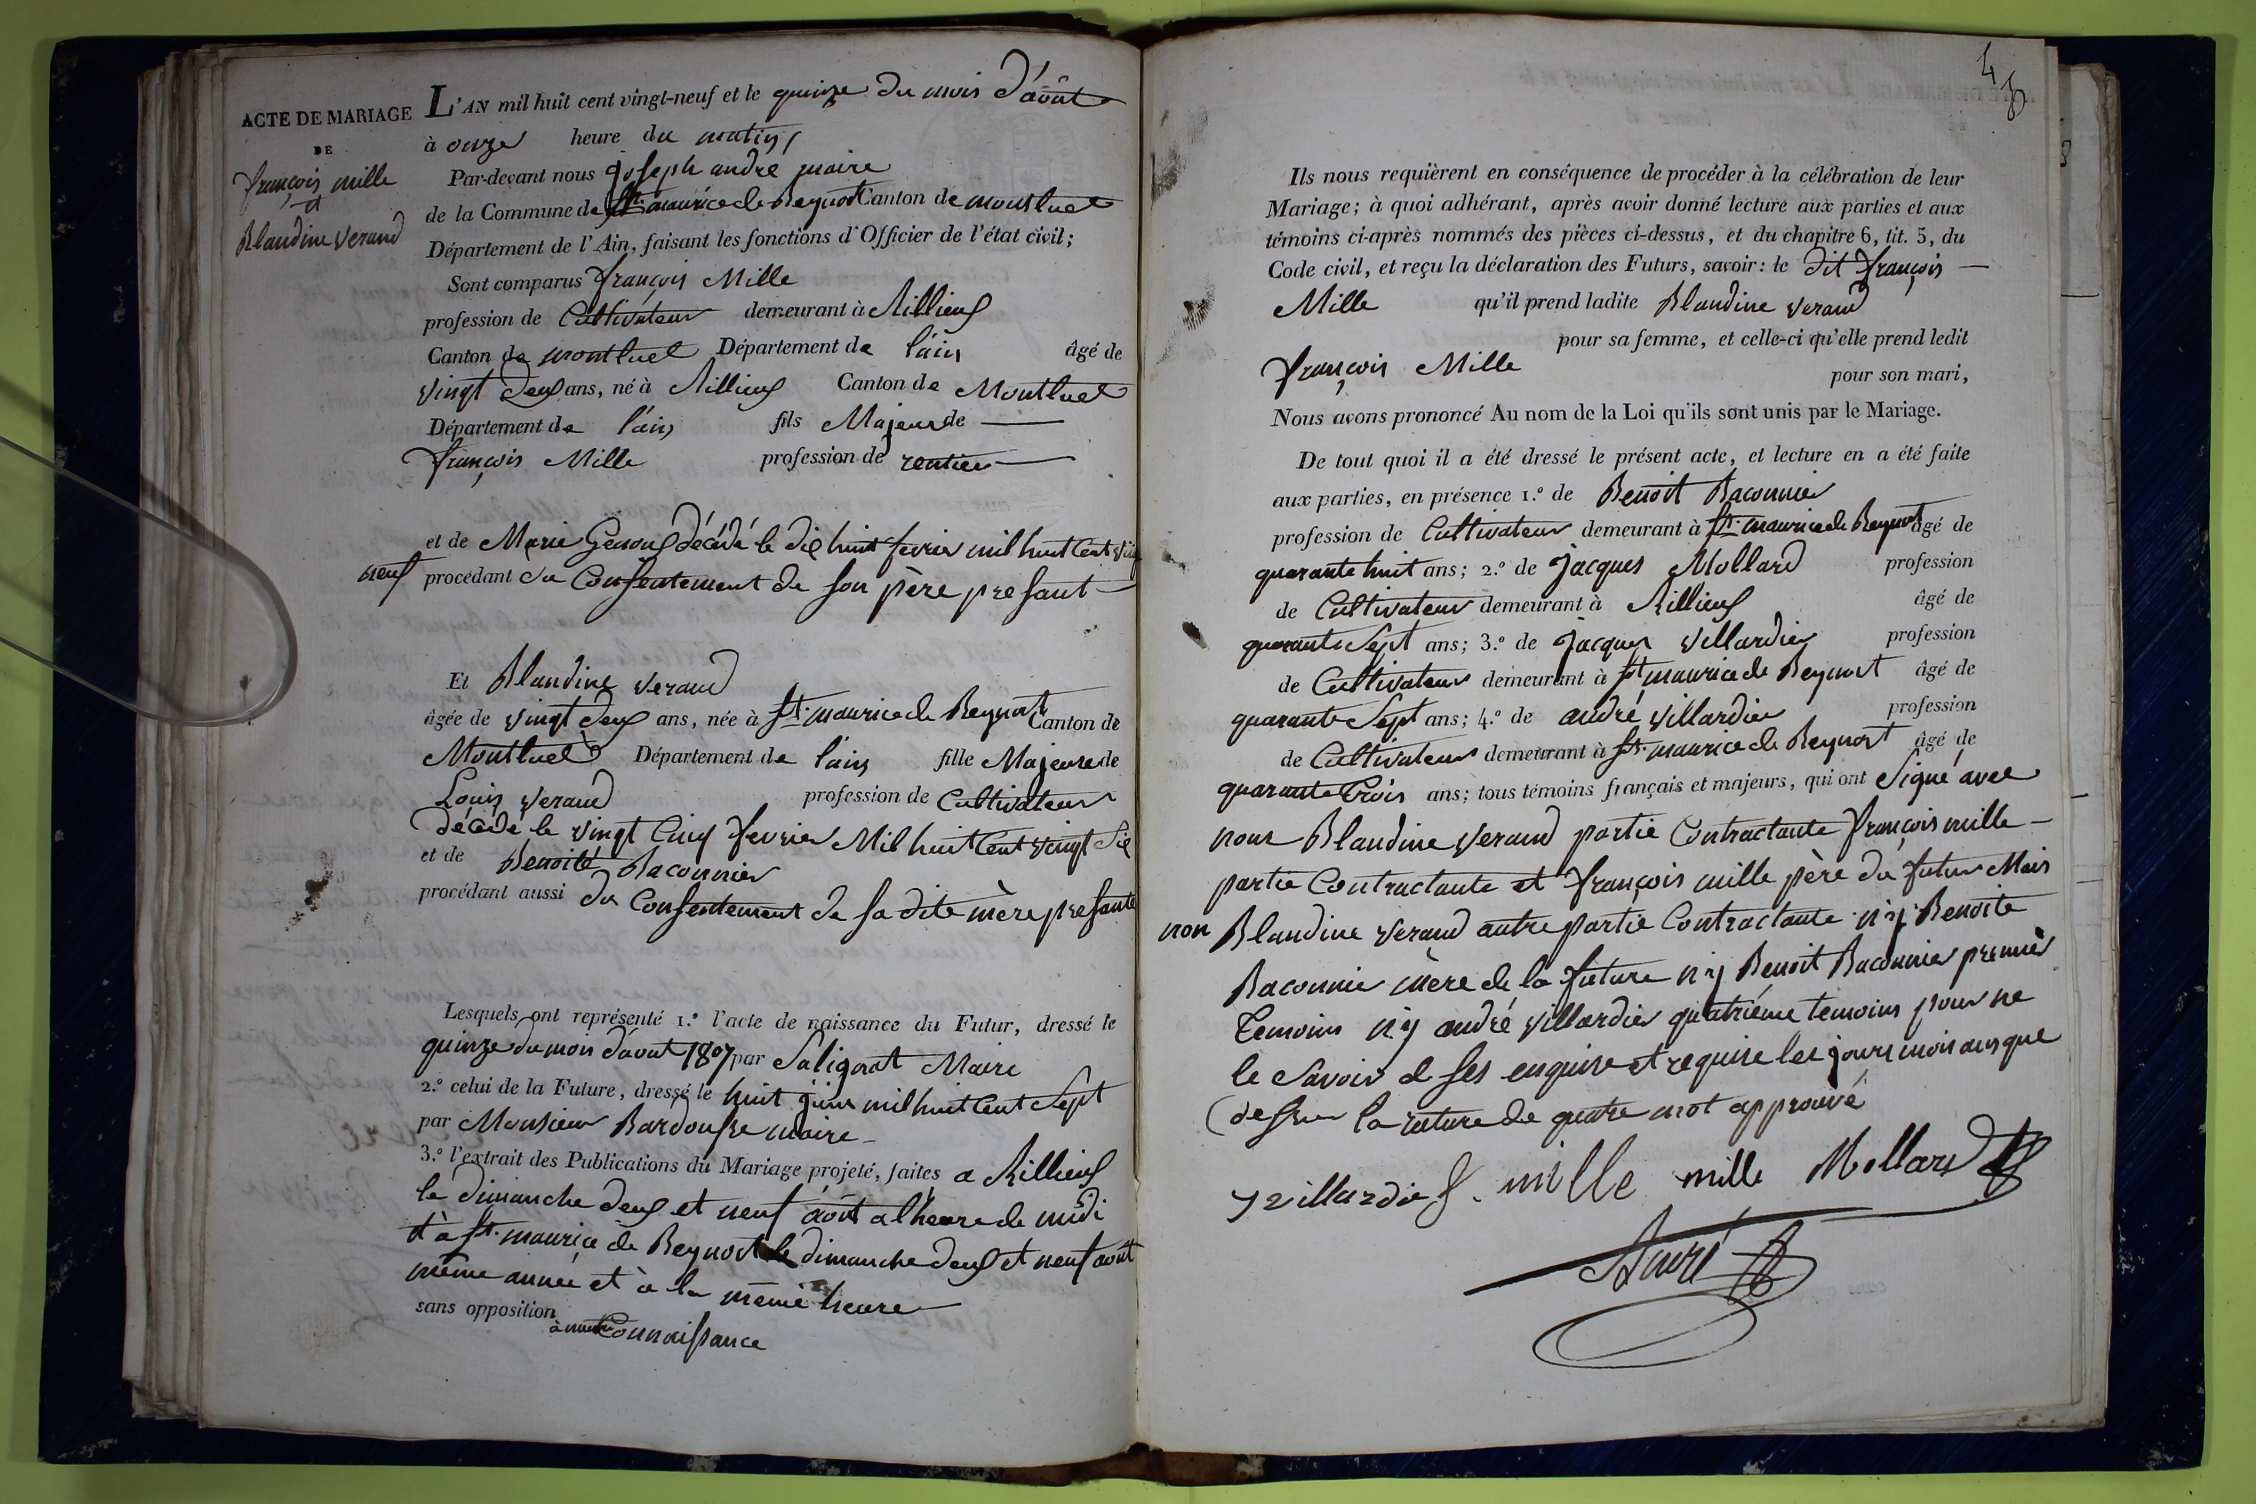 ACTE DE MARIAGE
DE
françois mille
et
Blandine Veraud
L'AN mil huit cent vingt-neuf et le quinze du mois d'août
à onze heure du matin,
Par-devant nous joseph andré maire
de la Commune de St. maurice de Beynost Canton de montluel
Département de l'Ain, faisant les fonctions d'Officier de l'état civil;
Sont comparus françois Mille
profession de Cultivateur demeurant à Rillieux
Canton de montluel Département de l'ain âgé de
vingt deux ans, né à Rillieux Canton de Montluel
Département de l'ain fils Majeur de
françois Mille profession de rentier
et de Marie Genoux décédé le dix huit fevrier mil huit Cent vingt
neuf procédant du Consentement de son père presant
Et Blandine Veraud
âgée de vingt deux ans, née à St. maurice de Beynost Canton de
Montluel Département de l'ain fille Majeure de
Louis Veraud profession de Cultivateur
décédé le vingt Cinq fevrier Mil huit Cent vingt Six
et de Benoite Baconnier
procédant aussi du Consentement de sa dite mère presante
Lesquels ont représenté 1.º l'acte de naissance du Futur, dressé le
quinze du mois d'avut 1807 par Salignat Maire
2.º celui de la Future, dressé le huit juin mil huit Cent Sept
par Monsieur Bardousse maire
3.º l'extrait des Publications du Mariage projeté, faites a Rillieux
le dimanche deux et neuf août a l'heure de midi
et à St. maurice de Beynost le dimanche deux et neuf août
même année et à la même heure
sans opposition
à notre Connaissance
48
Ils nous requièrent en conséquence de procéder à la célébration de leur
Mariage; à quoi adhérant, après avoir donné lecture aux parties et aux
témoins ci-après nommés des pièces ci-dessus, et du chapitre 6, tit. 5, du
Code civil, et reçu la déclaration des Futurs, savoir: le dit françois
Mille qu'il prend ladite Blandine Veraud
pour sa femme, et celle-ci qu'elle prend ledit
françois Mille pour son mari,
Nous avons prononcé Au nom de la Loi qu'ils sont unis par le Mariage.
De tout quoi il a été dressé le présent acte, et lecture en a été faite
aux parties, en présence 1.º de Benoit Baconnier
profession de Cultivateur demeurant à St. maurice de Beynost âgé de
quarante huit ans; 2.º de Jacques Mollard profession
de Cultivateur demeurant à Rillieux âgé de
quarante Sept ans; 3.º de Jacques Villardier profession
de Cultivateur demeurant à St maurice de Beynost âgé de
quarante Sept ans; 4.º de andré Villardier profession
de Cultivateur demeurant à St. maurice de Beynost âgé de
quarante trois ans; tous témoins français et majeurs, qui ont Signé avec
nous Blandine Veraud partie Contractante françois mille
partie Contractante et françois mille père du futur Mais
non Blandine Veraud autre partie Contractante ny Benoite
Baconnier mère de la future ny Benoit Baconnier premier
Temoins ny andré Villardier quatriéme temoins pour ne
le Savoir de ses enquise et requise les jours mois ans que
dessus la rature de quatre mot approuvé
J villardie f. mille mille Mollard
André